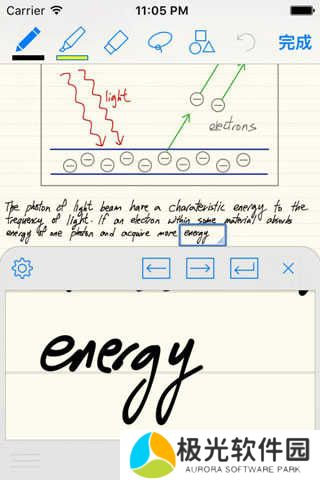 Carrier 11:05 PM
完成
light
electrons
The photon of light beam have a charateristic energy to the
frequency of light. If an electron within some material absorbs
energy of one photon and acquire more energy
energy
极光软件园
AURORA SOFTWARE PARK